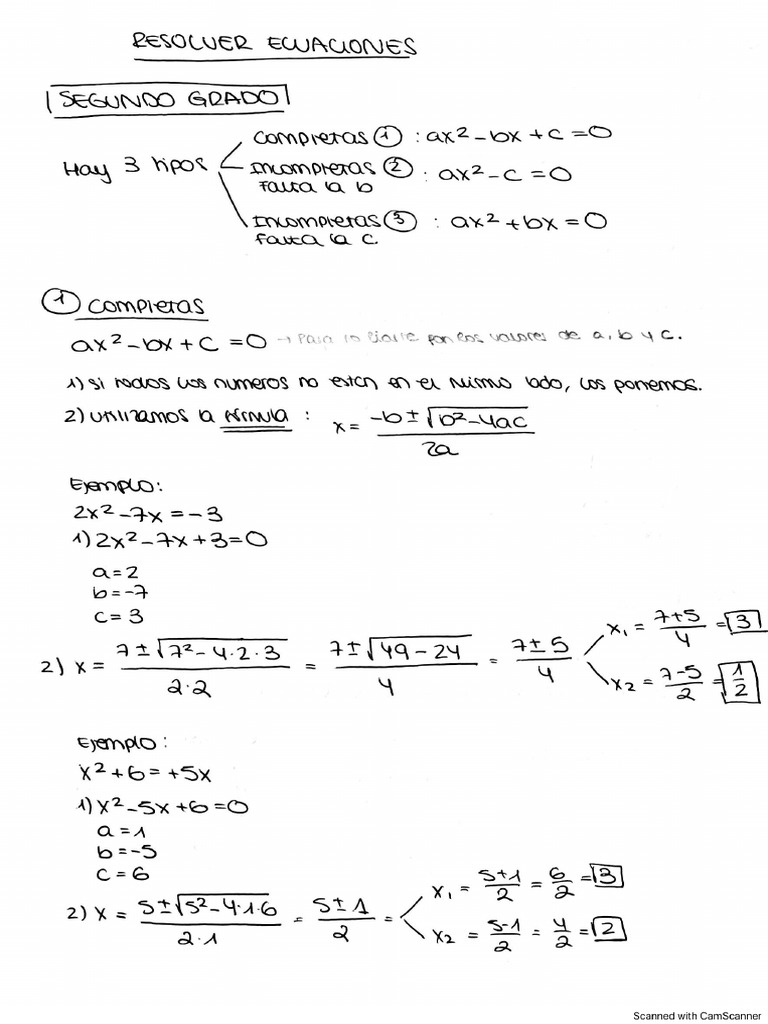 RESOLVER ECUACIONES
SEGUNDO GRADO
Hay 3 tipos
Completas ① : ax² - bx + c = 0
Incompletas ② : ax² - c = 0
Falta la b
Incompletas ③ : ax² + bx = 0
Falta la c.
① Completas
ax² - bx + c = 0 → Para por los valores de a, b y c.
1) Si todos los numeros no estan en el mismo lado, los ponemos.
2) utilizamos la fórmula : x = (-b ± √(b² - 4ac)) / 2a
Ejemplo:
2x² - 7x = -3
1) 2x² - 7x + 3 = 0
a = 2
b = -7
c = 3
2) x = (7 ± √(7² - 4·2·3)) / 2·2 = (7 ± √(49 - 24)) / 4 = (7 ± 5) / 4
x₁ = (7+5)/4 = 3
x₂ = (7-5)/2 = 1/2
Ejemplo:
x² + 6 = +5x
1) x² - 5x + 6 = 0
a = 1
b = -5
c = 6
2) x = (5 ± √(5² - 4·1·6)) / 2·1 = (5 ± 1) / 2 =
x₁ = (5+1)/2 = 6/2 = 3
x₂ = (5-1)/2 = 4/2 = 2
Scanned with CamScanner